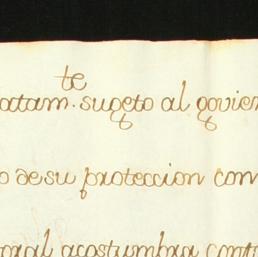 atam.te sugeto al govier
o de su proteccion con
oral acostumbra cont